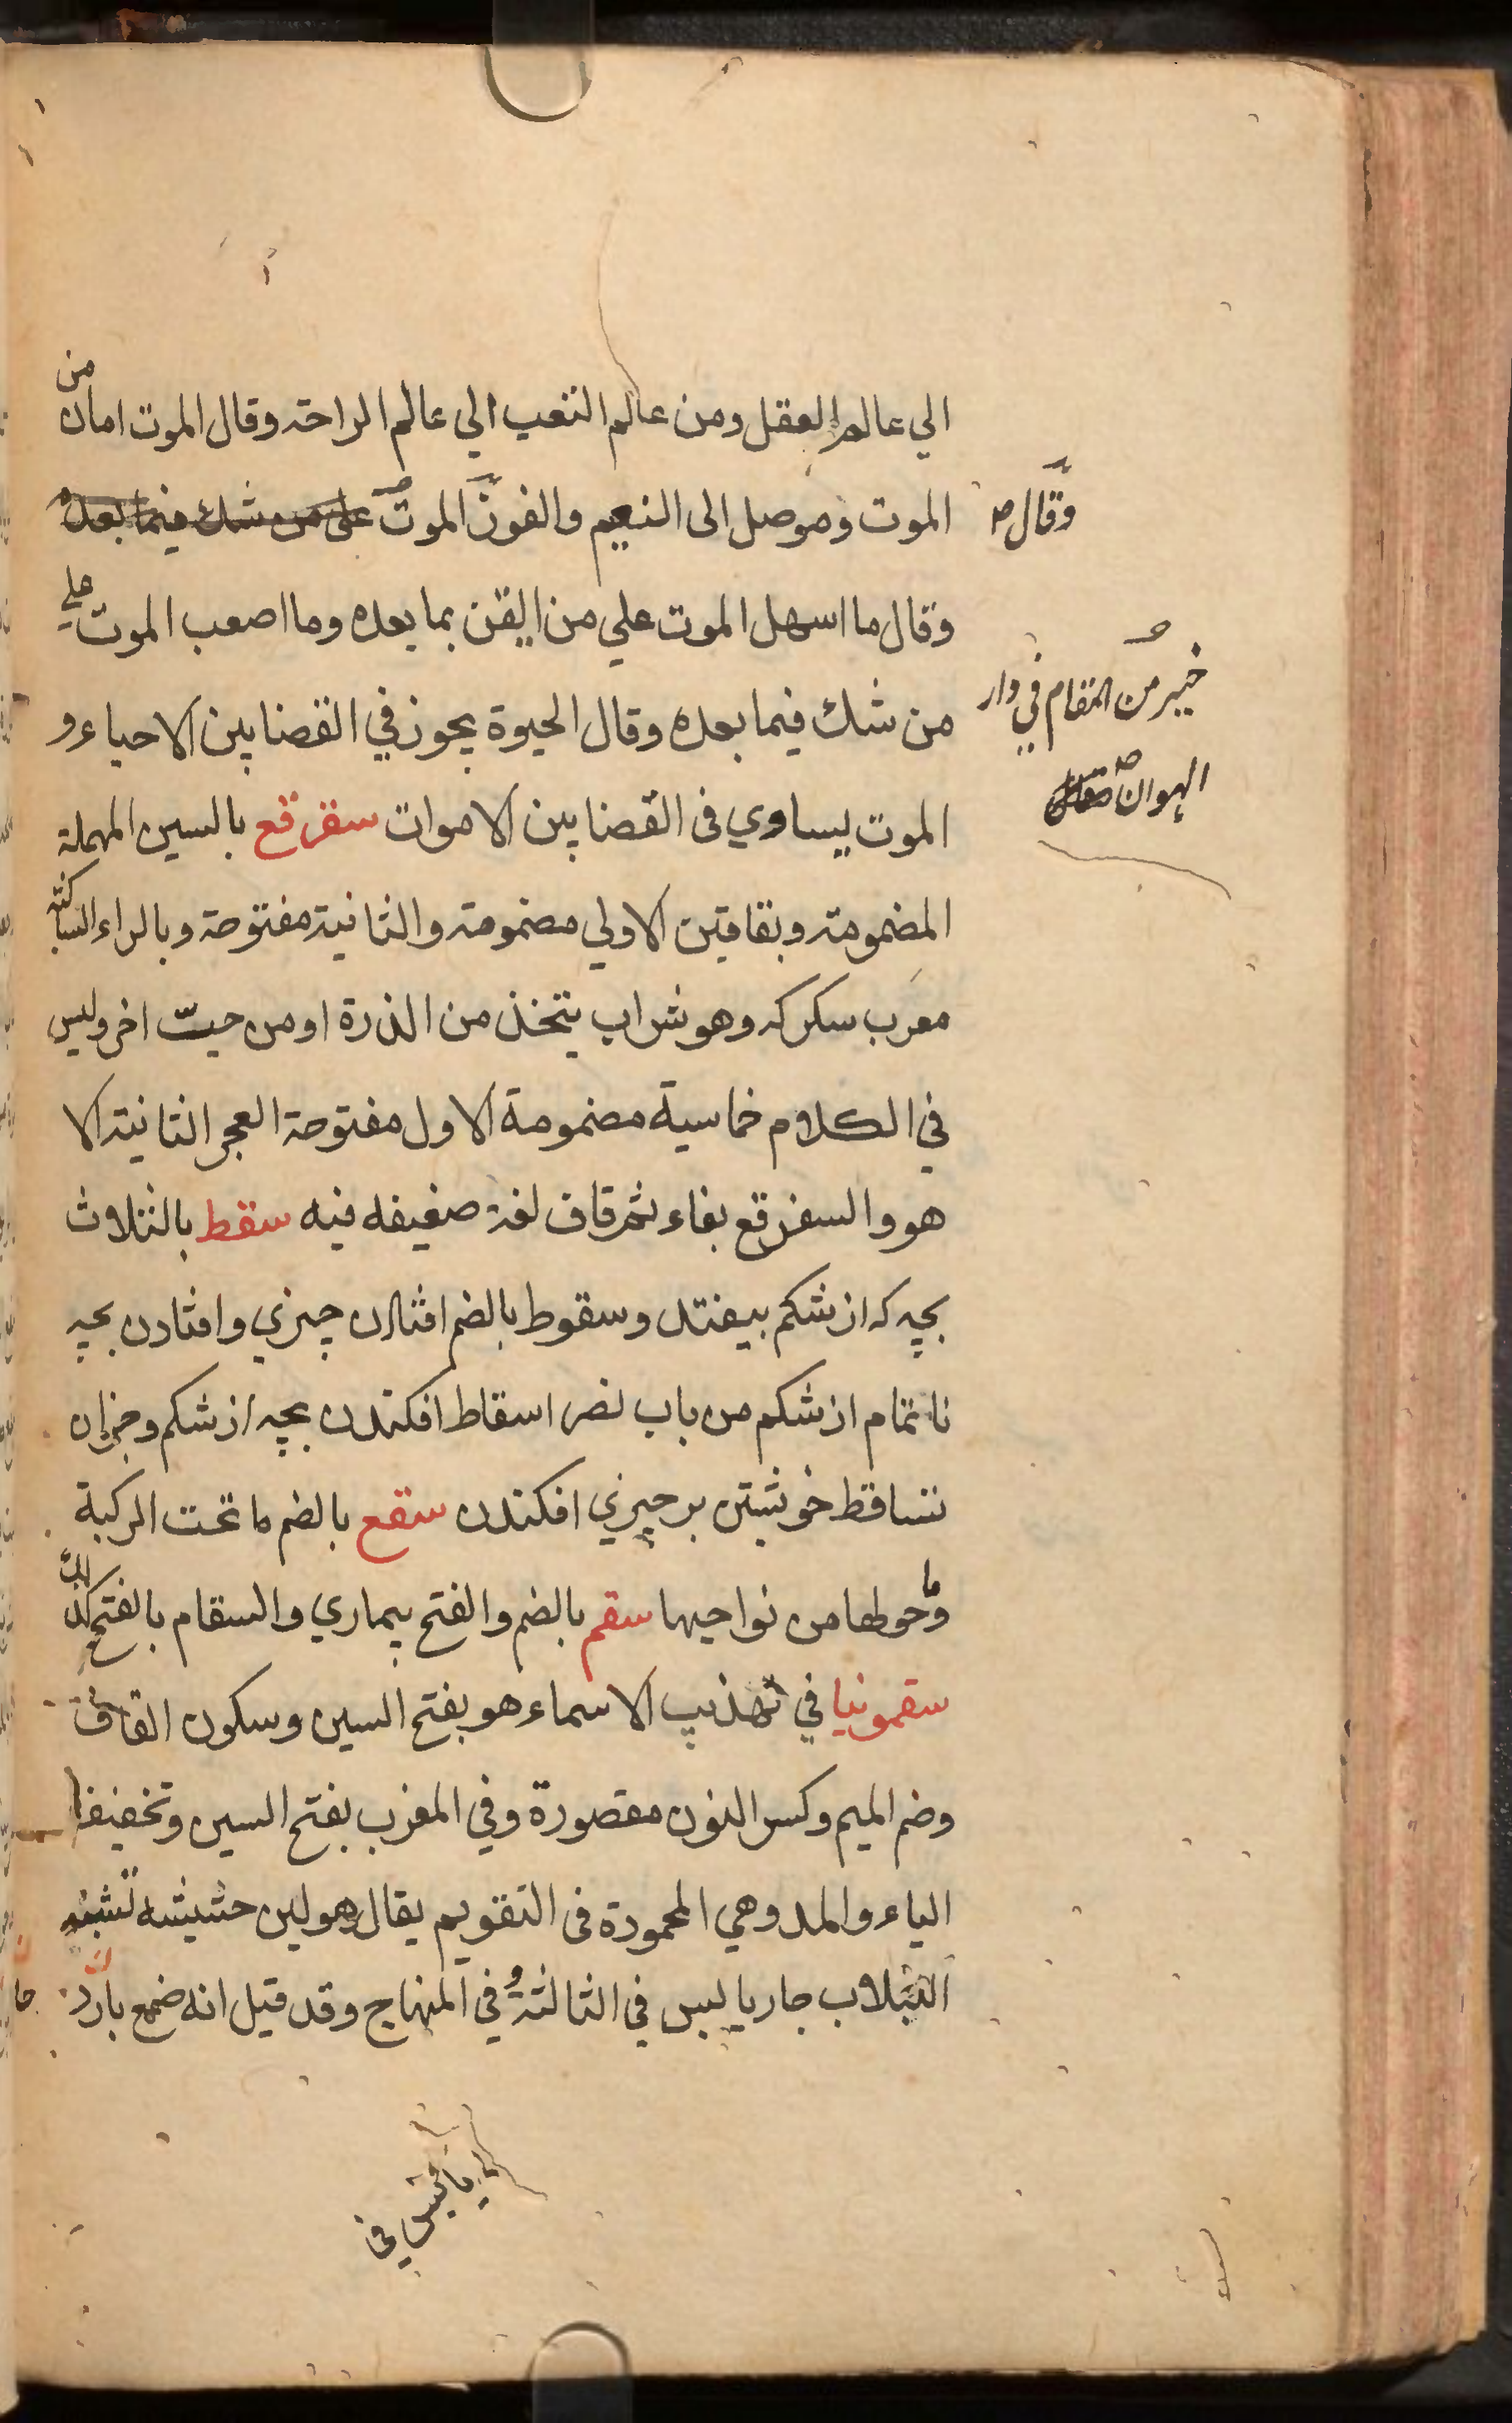 الي عالم العقل ومن عالم التعب الي عالم الراحة وقال الموت امان من
الموت وموصل الى النعيم والفوز الموت على من شك فيما بعده
وقال ما اسهل الموت علي من ايقن بما بعده وما اصعب الموت علي
من شك فيما بعده وقال الحيوة يجوز في القضا بين الاحياء و
الموت يساوي فى القضا بين الاموات سقرقع بالسين المهملة
المضمومة وبقافين الاولي مضمومة والثانية مفتوحة وبالراء الساكنة
معرب سكركه وهو شراب يتخذ من الذرة او من حبّ اخر وليس
في الكلام خماسية مضمومة الاول مفتوحة العجز الثانية الا
هو والسفرقع بفاء ثم قاف لغة ضعيفه فيه سقط بالثلاث
بچه كه از شكم بيفتد وسقوط بالضم افتادن چيزي وافتادن بچه
ناتمام از شكم من باب نصر اسقاط افكندن بچه از شكم وجزان
تساقط خويشتن بر چيزي افكندن سقع بالضم ما تحت الركبة
وما حولها من نواحيها سقم بالضم والفتح بيماري والسقام بالفتح كذلك
سقمونيا في تهذيب الاسماء هو بفتح السين وسكون القاف
وضم الميم وكسر النون مقصورة وفي المغرب بفتح السين وتخفيف
الياء والمد وهي المحمودة فى التقويم يقال هو لبن حشيشه تشبه
اللبلاب حار يابس في الثالثة وفي المنهاج وقد قيل انه صمغ بارد
وقال صح
خير من المقام في دار
الهوان صح
يابس في